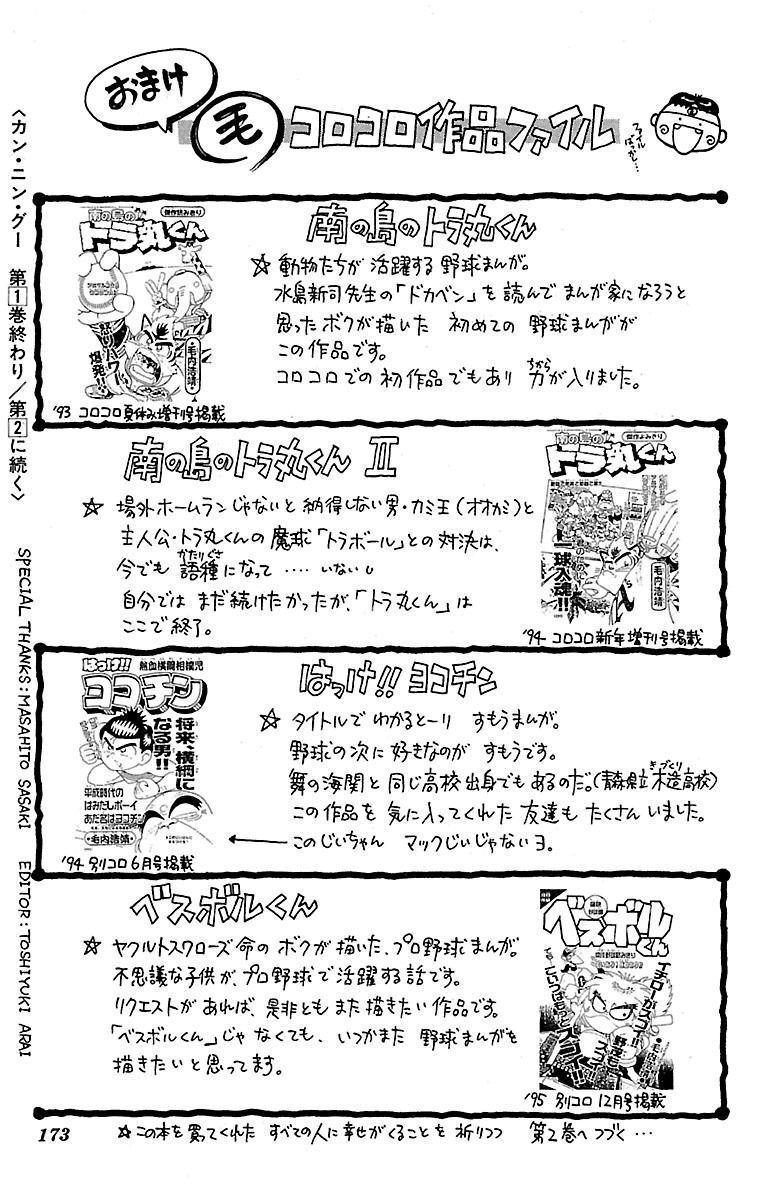 おまけ
毛 コロコロ作品ファイル
ファイル
ばっかし…
南の島の
トラ丸くん
傑作読みきり
怒りパワー
爆発!!
毛内浩靖
'93 コロコロ夏休み増刊号掲載
南の島のトラ丸くん
☆動物たちが活躍する野球まんが。
水島新司先生の「ドカベン」を読んでまんが家になろうと
思ったボクが描いた 初めての 野球まんがが
この作品です。
コロコロでの初作品でもあり 力が入りました。
ちから
南の島のトラ丸くん Ⅱ
☆場外ホームランじゃないと納得しない男・カミ王(オオカミ)と
主人公・トラ丸くんの魔球「トラボール」との対決は、
今でも 語種になって ‥‥ いない
かたりぐさ
自分では まだ続けたかったが、「トラ丸くん」は
ここで終了。
南の島の
トラ丸くん
傑作よみきり
一球入魂!!
毛内浩靖
'94 コロコロ新年増刊号掲載
はっけ!!
熱血横綱相撲児
ヨコチン
将来、横綱に
なる男!!
平成時代の
はみだしボーイ
あだ名はヨコチン
毛内浩靖
'94 別コロ6月号掲載
はっけ!! ヨコチン
☆タイトルでわかるとーり すもうまんが。
野球の次に好きなのが すもうです。
舞の海関と同じ高校出身でもあるのだ。(青森県立木造高校)
きづくり
この作品を気に入ってくれた友達もたくさんいました。
このじいちゃん マックじいじゃないヨ。
ベスボルくん
☆ヤクルトスワローズ命のボクが描いた、プロ野球まんが。
不思議な子供が、プロ野球で活躍する話です。
リクエストがあれば、是非ともまた描きたい作品です。
「ベスボルくん」じゃなくても、いつかまた 野球まんがを
描きたいと思ってます。
ベスボル
くん
イチローがスゴイ!!
野茂もスゴイ!!
こいつはもっとスゴイ!!
'95 別コロ12月号掲載
☆この本を買ってくれた すべての人に幸せがくることを 祈りつつ 第2巻へつづく…
173
〈カン・ニン・グー 第1巻終わり/第2に続く〉
SPECIAL THANKS:MASAHITO SASAKI EDITOR:TOSHIYUKI ARAI